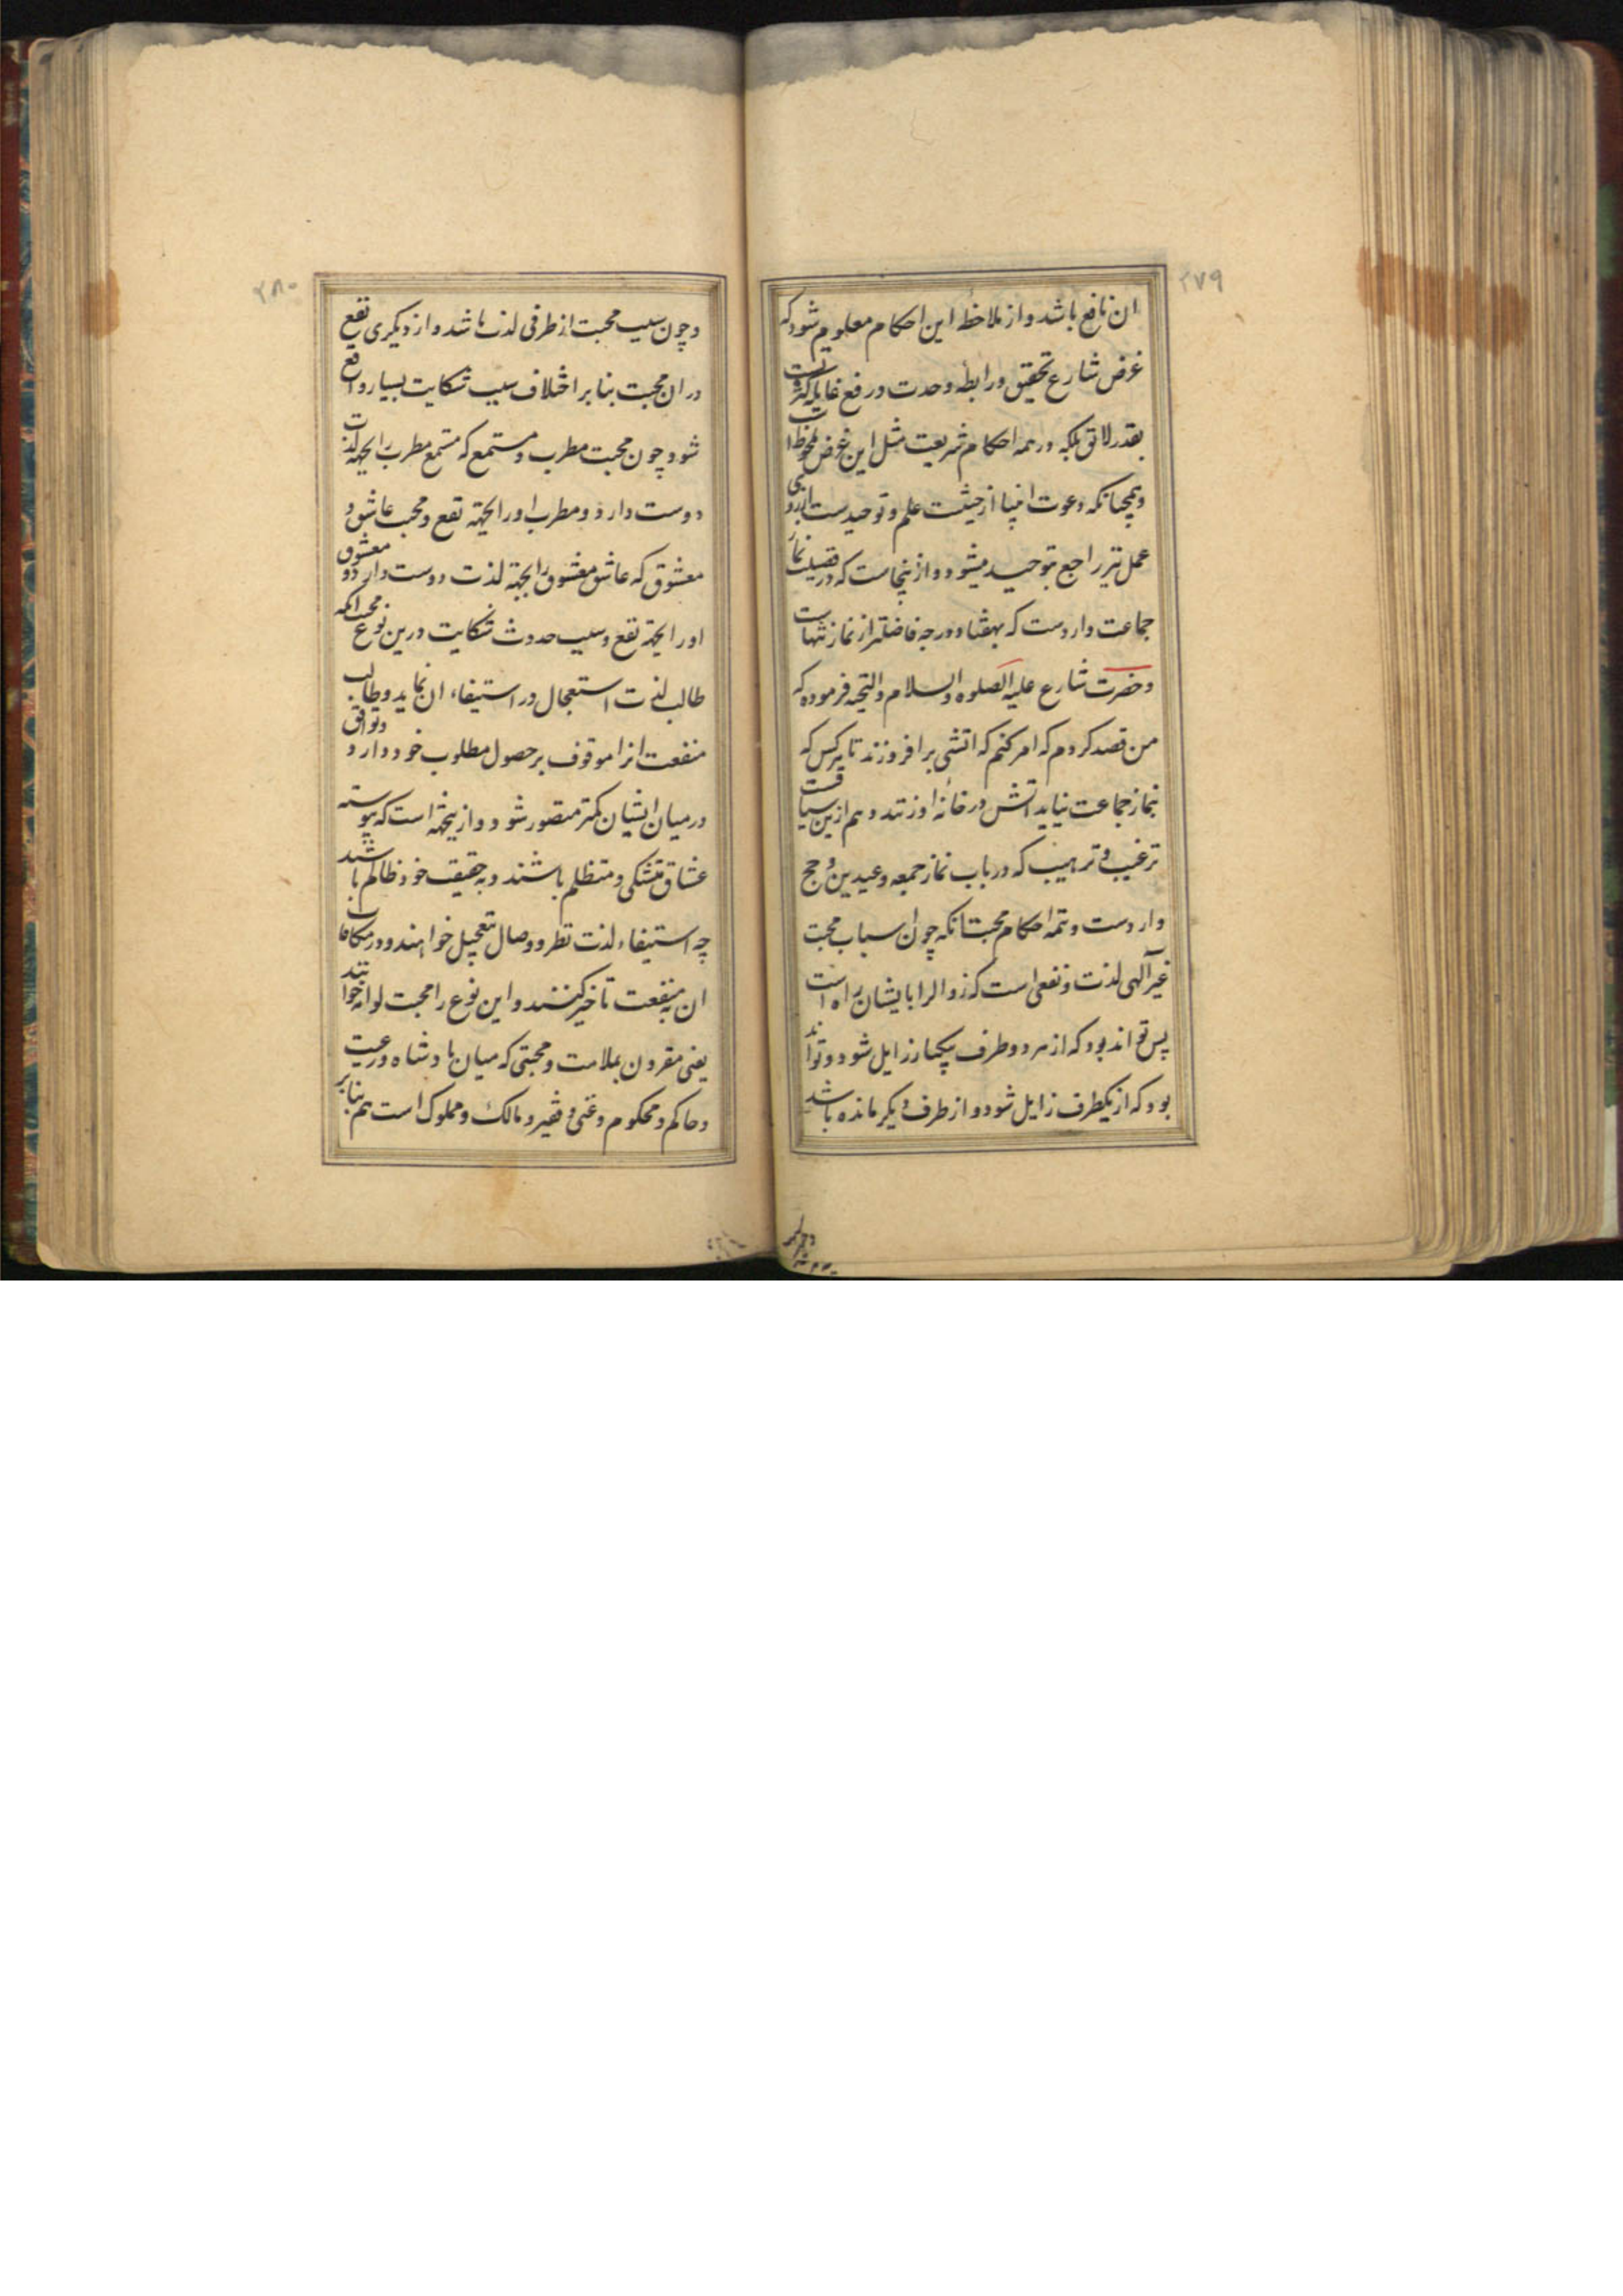 ۲۷۹
ان نافع باشد و از ملاحظه این احکام معلوم شود که
غرض شارع تحقیق رابطه وحدت و رفع غایله کثرت
بقدر لایق بلکه در همه احکام شریعت مثل این غرض ملحوظ
و همچنانکه دعوت انبیا از حیثیت علم و توحید ست
عمل نیز راجع بتوحید میشود و از ینجاست که در فضیلت نماز
جماعت وارد ست که بهفتاد درجه فاضلتر از نماز تنهاست
و حضرت شارع علیه الصلوه والسلام والتحیه فرموده که
من قصد کردم که امر کنم که اتشی برافروزند تا هر کس که
بنماز جماعت نیاید اتش در خانه او زنند و هم ازین سیاقت
ترغیب و ترهیب که در باب نماز جمعه و عیدین و حج
وارد ست و تتمه احکام محبت انکه چون اسباب محبت
غیر آلهی لذت و نفعی است که زوال را بایشان راه است
پس تواند بود که از هر دو طرف یکبار زایل شود و تواند
بود که از یکطرف زایل شود و از طرف دیگر مانده باشد
۲۸۰
و چون سبب محبت از طرفی لذت باشد و از دیگری نفع
در ان محبت بنا بر اختلاف سبب شکایت بسیار واقع
شود چون محبت مطرب و مستمع که مستمع مطرب را بجهة لذت
دوست دارد و مطرب او را بجهة نفع و محبت عاشق و
معشوق که عاشق معشوق را بجهة لذت دوست دارد و معشوق
او را بجهة نفع و سبب حدوث شکایت درین نوع محبت انکه
طالب لذت استعجال در استیفاء ان نماید و طالب
منفعت انرا موقوف بر حصول مطلوب خود دارد و توافق
در میان ایشان کمتر متصور شود و از ینجهة است که پیوسته
عشاق متشکی و متظلم باشند و به حقیقت خود ظالم باشند
چه استیفاء لذت نظر و وصال بتعجیل خواهند و در مکافات
ان بمنفعت تاخیر کنند و این نوع را محبت لوامه خوانند
یعنی مقرون بملامت و محبتی که میان پادشاه و رعیت
و حاکم و محکوم و غنی و فقیر و مالک و مملوک است هم بنا بر